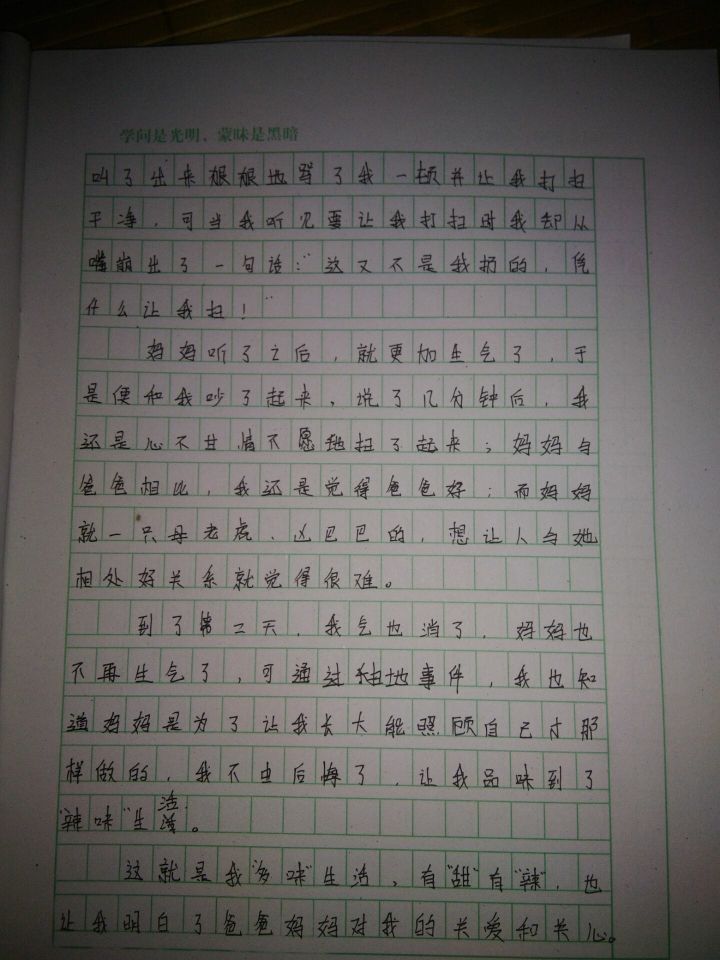 学问是光明、蒙昧是黑暗
叫了出来狠狠地骂了我一顿并让我打扫
干净，可当我听见要让我打扫时我却从
嘴崩出了一句话："这又不是我扔的，凭
什么让我扫！"
妈妈听了之后，就更加生气了，于
是便和我吵了起来，说了几分钟后，我
还是心不甘情不愿地扫了起来；妈妈与
爸爸相比，我还是觉得爸爸好；而妈妈
就一只母老虎、凶巴巴的，想让人与她
相处好关系就觉得很难。
到了第二天，我气也消了，妈妈也
不再生气了，可通过扫地事件，我也知
道妈妈是为了让我长大能照顾自己才那
样做的，我不由后悔了，让我品味到了
"辣味"生活。
这就是我"多味"生活，有"甜"有"辣"，也
让我明白了爸爸妈妈对我的关爱和关心。